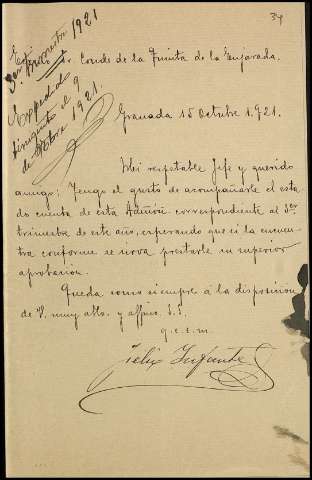 34
3er trimestre 1921
Expedida
el 9
de 1921.
Sr. Conde de la Quinta de la Enjarada.
Granada 15 Octubre 1.921.
Mi respetable Jefe y querido
amigo: Tengo el gusto de acompañarle el esta
do cuenta de esta Admón. correspondiente al 3er
trimestre de este año, esperando que si la encuen
tra conforme se sirva prestarle su superior
aprobación.
Queda como siempre a la disposición
de V. muy atto. y affmo. S.S.
q.e.s.m.
Felix Infante